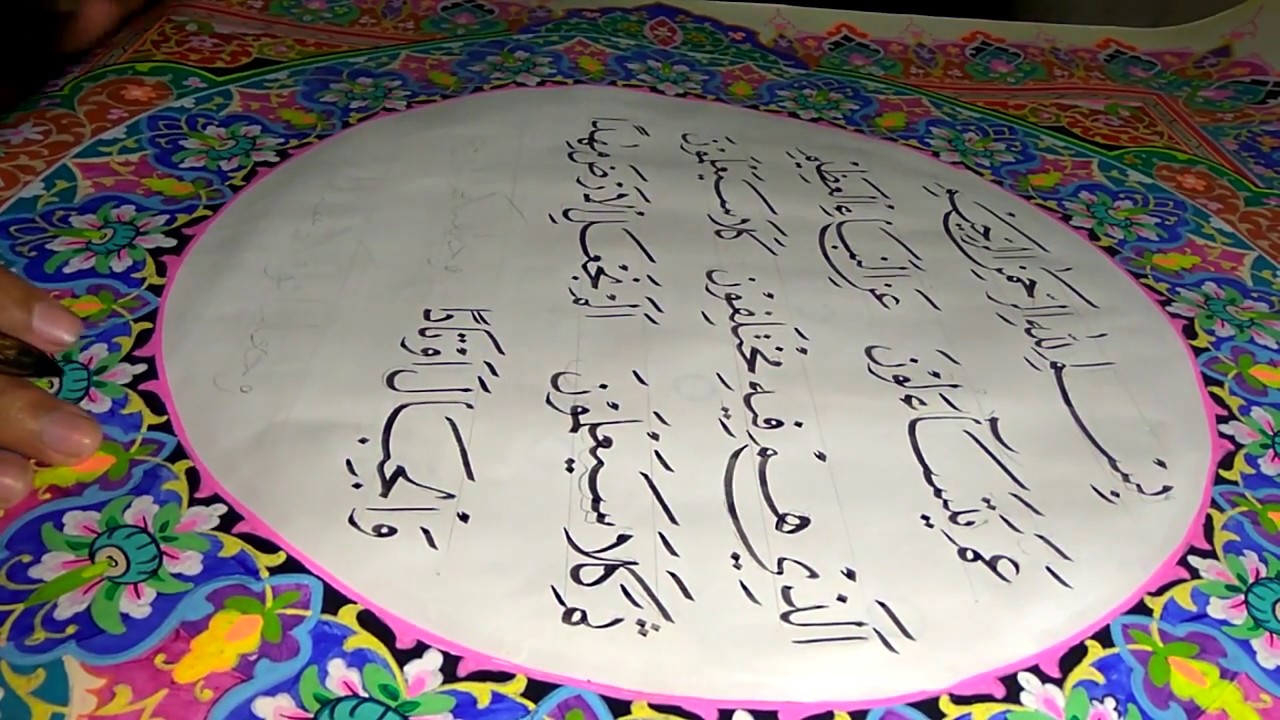 بِسْمِ اللهِ الرَّحْمٰنِ الرَّحِيْمِ
عَمَّ يَتَسَآءَلُوْنَ عَنِ النَّبَاِ الْعَظِيْمِ
الَّذِيْ هُمْ فِيْهِ مُخْتَلِفُوْنَ كَلَّا سَيَعْلَمُوْنَ
ثُمَّ كَلَّا سَيَعْلَمُوْنَ اَلَمْ نَجْعَلِ الْاَرْضَ مِهٰدًا
وَالْجِبَالَ اَوْتَادًا